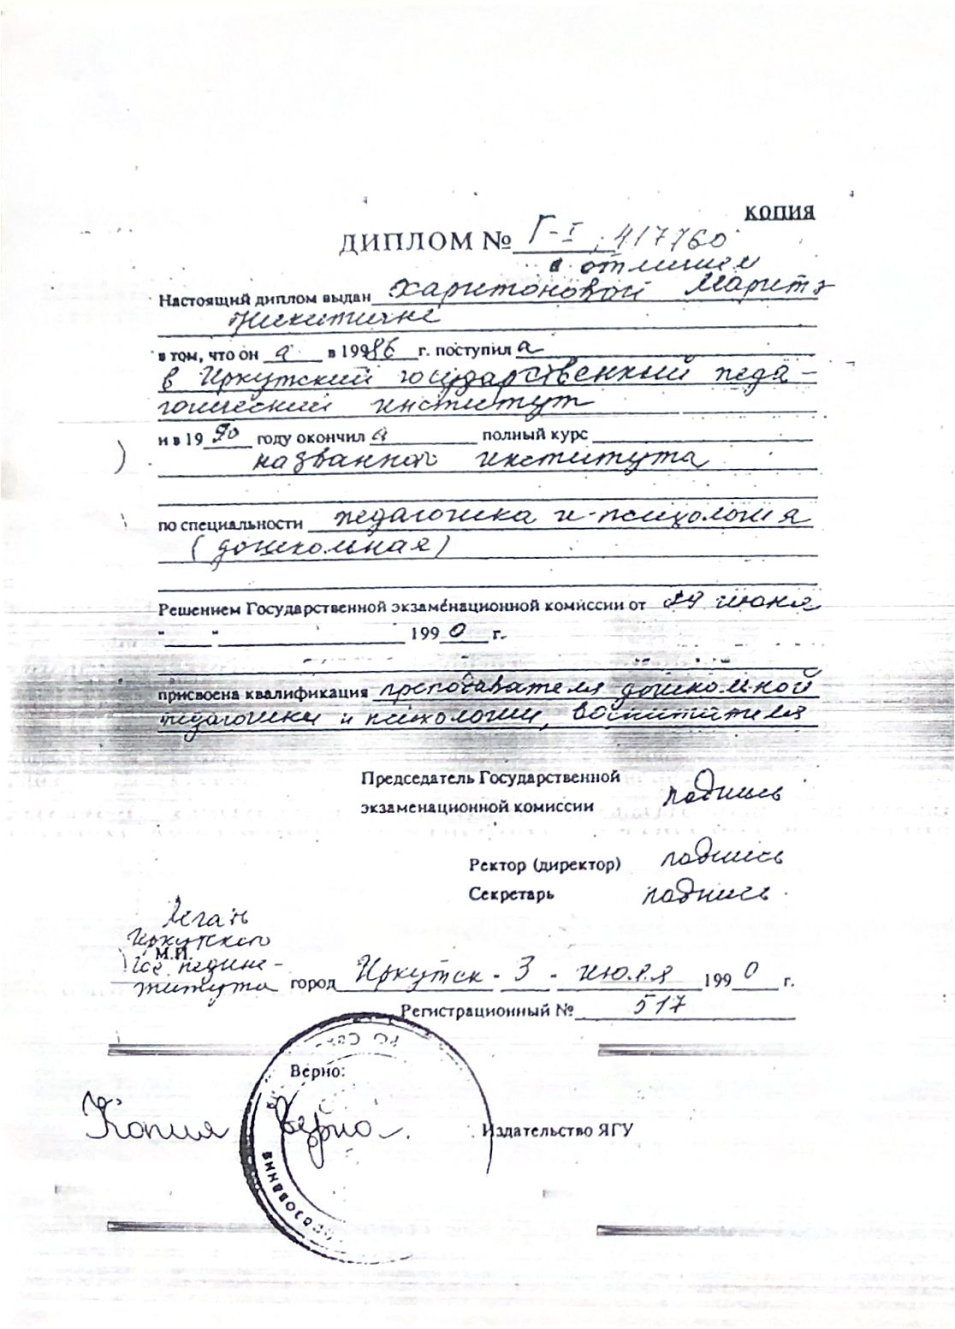 КОПИЯ
ДИПЛОМ № Г-I, 417760
с отличием
Настоящий диплом выдан Харитоновой Марите
Никитичне
в том, что он а в 1986 г. поступил а
в Иркутский государственный педа-
гогический институт
и в 19 90 году окончил а полный курс
названного института
по специальности педагогика и психология
(дошкольная)
Решением Государственной экзаменационной комиссии от 29 июня
" " 1990 г.
присвоена квалификация преподавателя дошкольной
педагогики и психологии, воспитателя
Председатель Государственной
экзаменационной комиссии подпись
Ректор (директор) подпись
Секретарь подпись
Иркутского
М.П.
гос. педин-
ститута
город Иркутск - 3 - июля 1990 г.
Регистрационный № 517
Верно:
Копия Верно
Издательство ЯГУ